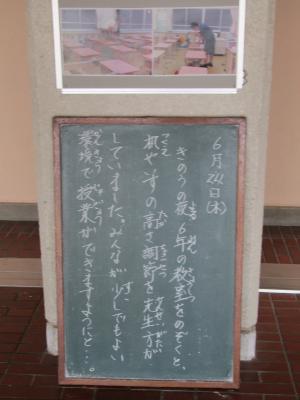 6月24日(木)
きのうの夜、6年の教室をのぞくと、
机やイスの高さ調節を先生方が
していました。みんなが少しでもよい
環境で授業ができますようにと…。